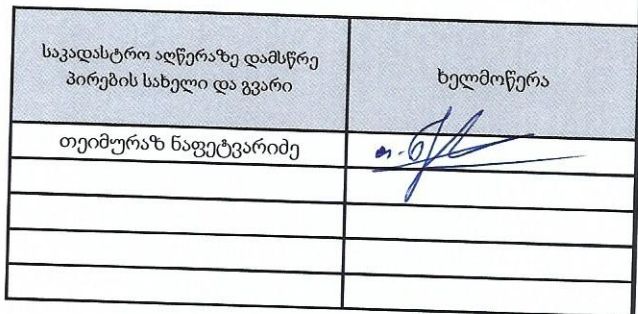 საკადასტრო აღწერაზე დამსწრე
პირების სახელი და გვარი
ხელმოწერა
თეიმურაზ ნაფეტვარიძე